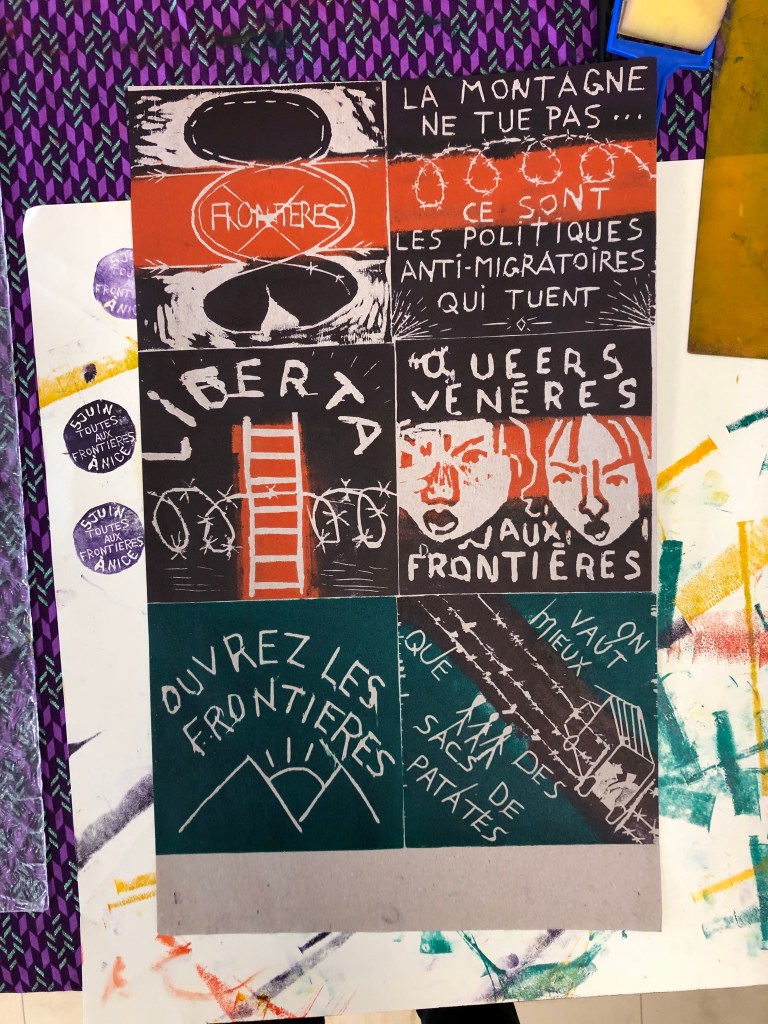 FRONTIERES
LA MONTAGNE
NE TUE PAS...
CE SONT
LES POLITIQUES
ANTI-MIGRATOIRES
QUI TUENT
LIBERTA
QUEERS
VENÈRES
AUX
FRONTIÈRES
OUVREZ LES
FRONTIERES
ON
VAUT
MIEUX
QUE
DES
SACS DE
PATATES
5 JUIN
TOU
FRONTI
À NIC
5 JUIN
TOUTES
AUX
FRONTIÈRES
À NICE
5 JUIN
TOUTES
AUX
FRONTIÈRES
À NICE